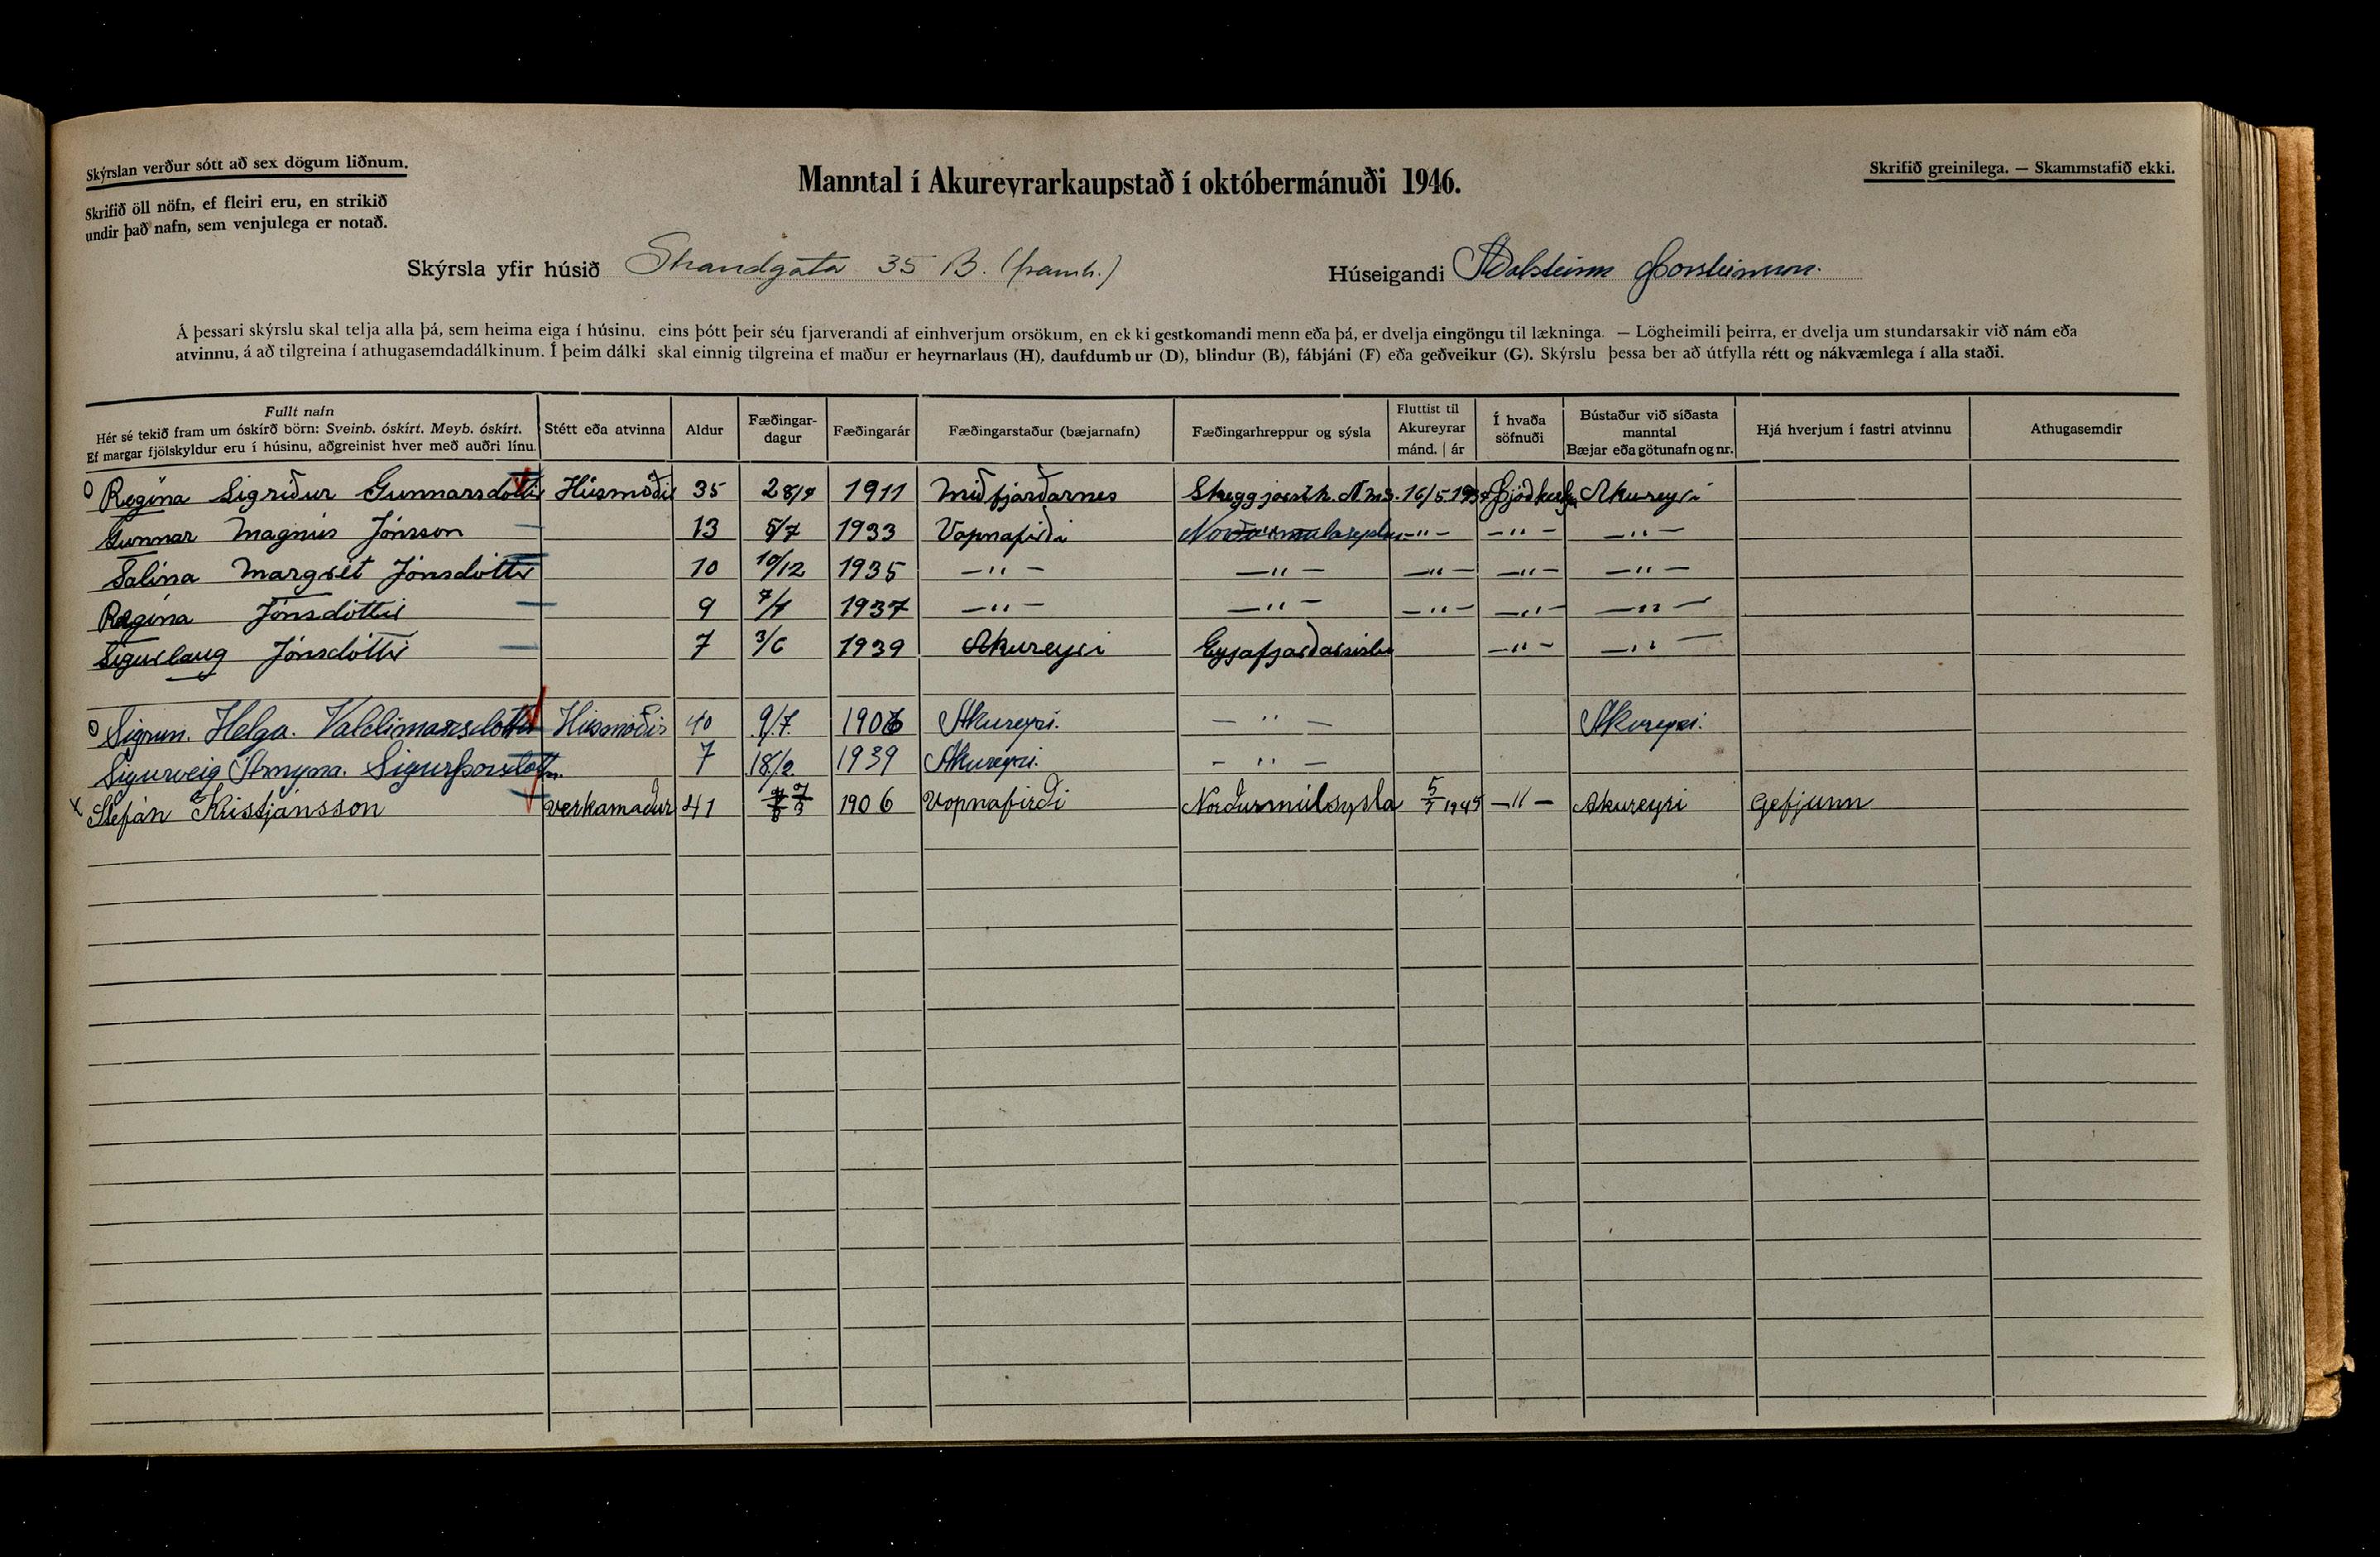 Skýrslan verður sótt að sex dögum liðnum.
Skrifið öll nöfn, ef fleiri eru, en strikið
undir það nafn, sem venjulega er notað.
Manntal í Akureyrarkaupstað í októbermánuði 1946.
Skrifið greinilega. — Skammstafið ekki.
Skýrsla yfir húsið Strandgata 35 B. (framh.)
Húseigandi Aðalsteinn Þorsteinsson.
Á þessari skýrslu skal telja alla þá, sem heima eiga í húsinu, eins þótt þeir séu fjarverandi af einhverjum orsökum, en ekki gestkomandi menn eða þá, er dvelja eingöngu til lækninga. — Lögheimili þeirra, er dvelja um stundarsakir við nám eða
atvinnu, á að tilgreina í athugasemdadálkinum. Í þeim dálki skal einnig tilgreina ef maður er heyrnarlaus (H), daufdumbur (D), blindur (B), fábjáni (F) eða geðveikur (G). Skýrslu þessa ber að útfylla rétt og nákvæmlega í alla staði.
Fullt nafn
Hér sé tekið fram um óskírð börn: Sveinb. óskírt. Meyb. óskírt.
Ef margar fjölskyldur eru í húsinu, aðgreinist hver með auðri línu.
Stétt eða atvinna
Aldur
Fæðingar-
dagur
Fæðingarár
Fæðingarstaður (bæjarnafn)
Fæðingarhreppur og sýsla
Fluttist til
Akureyrar
mánd. | ár
Í hvaða
söfnuði
Bústaður við síðasta
manntal
Bæjar eða götunafn og nr.
Hjá hverjum í fastri atvinnu
Athugasemdir
o Regína Sigríður Gunnarsdóttir Húsmóðir 35 1911 Miðfjarðarnes Skeggjasth. N.ms. 16/5 Þjóðkirkj Akureyri
Gunnar Magnús Jónsson 13 5/7 1933 Vopnafirði Norðurmulasyslu —"— —"— —"—
Salína Margrét Jónsdóttir 10 10/12 1935 —"— —"— —"— —"— —"—
Regína Jónsdóttir 9 1937 —"— —"— —"— —"— —"—
Sigurlaug Jónsdóttir 7 3/6 1939 Akureyri Eyjafjarðarsýslu —"— —"—
o Sigrun. Helga. Valdimarsdóttir Húsmóðir 40 9/7. 1906 Akureyri. —"— Akureyri.
Sigurveig Sigurþórsdóttir. 7 18/2 1939 Akureyri. —"—
x Stefán Kristjánsson verkamaður 41 1906 Vopnafirði Norðurmúlsysla 1945 —"— Akureyri Gefjunn